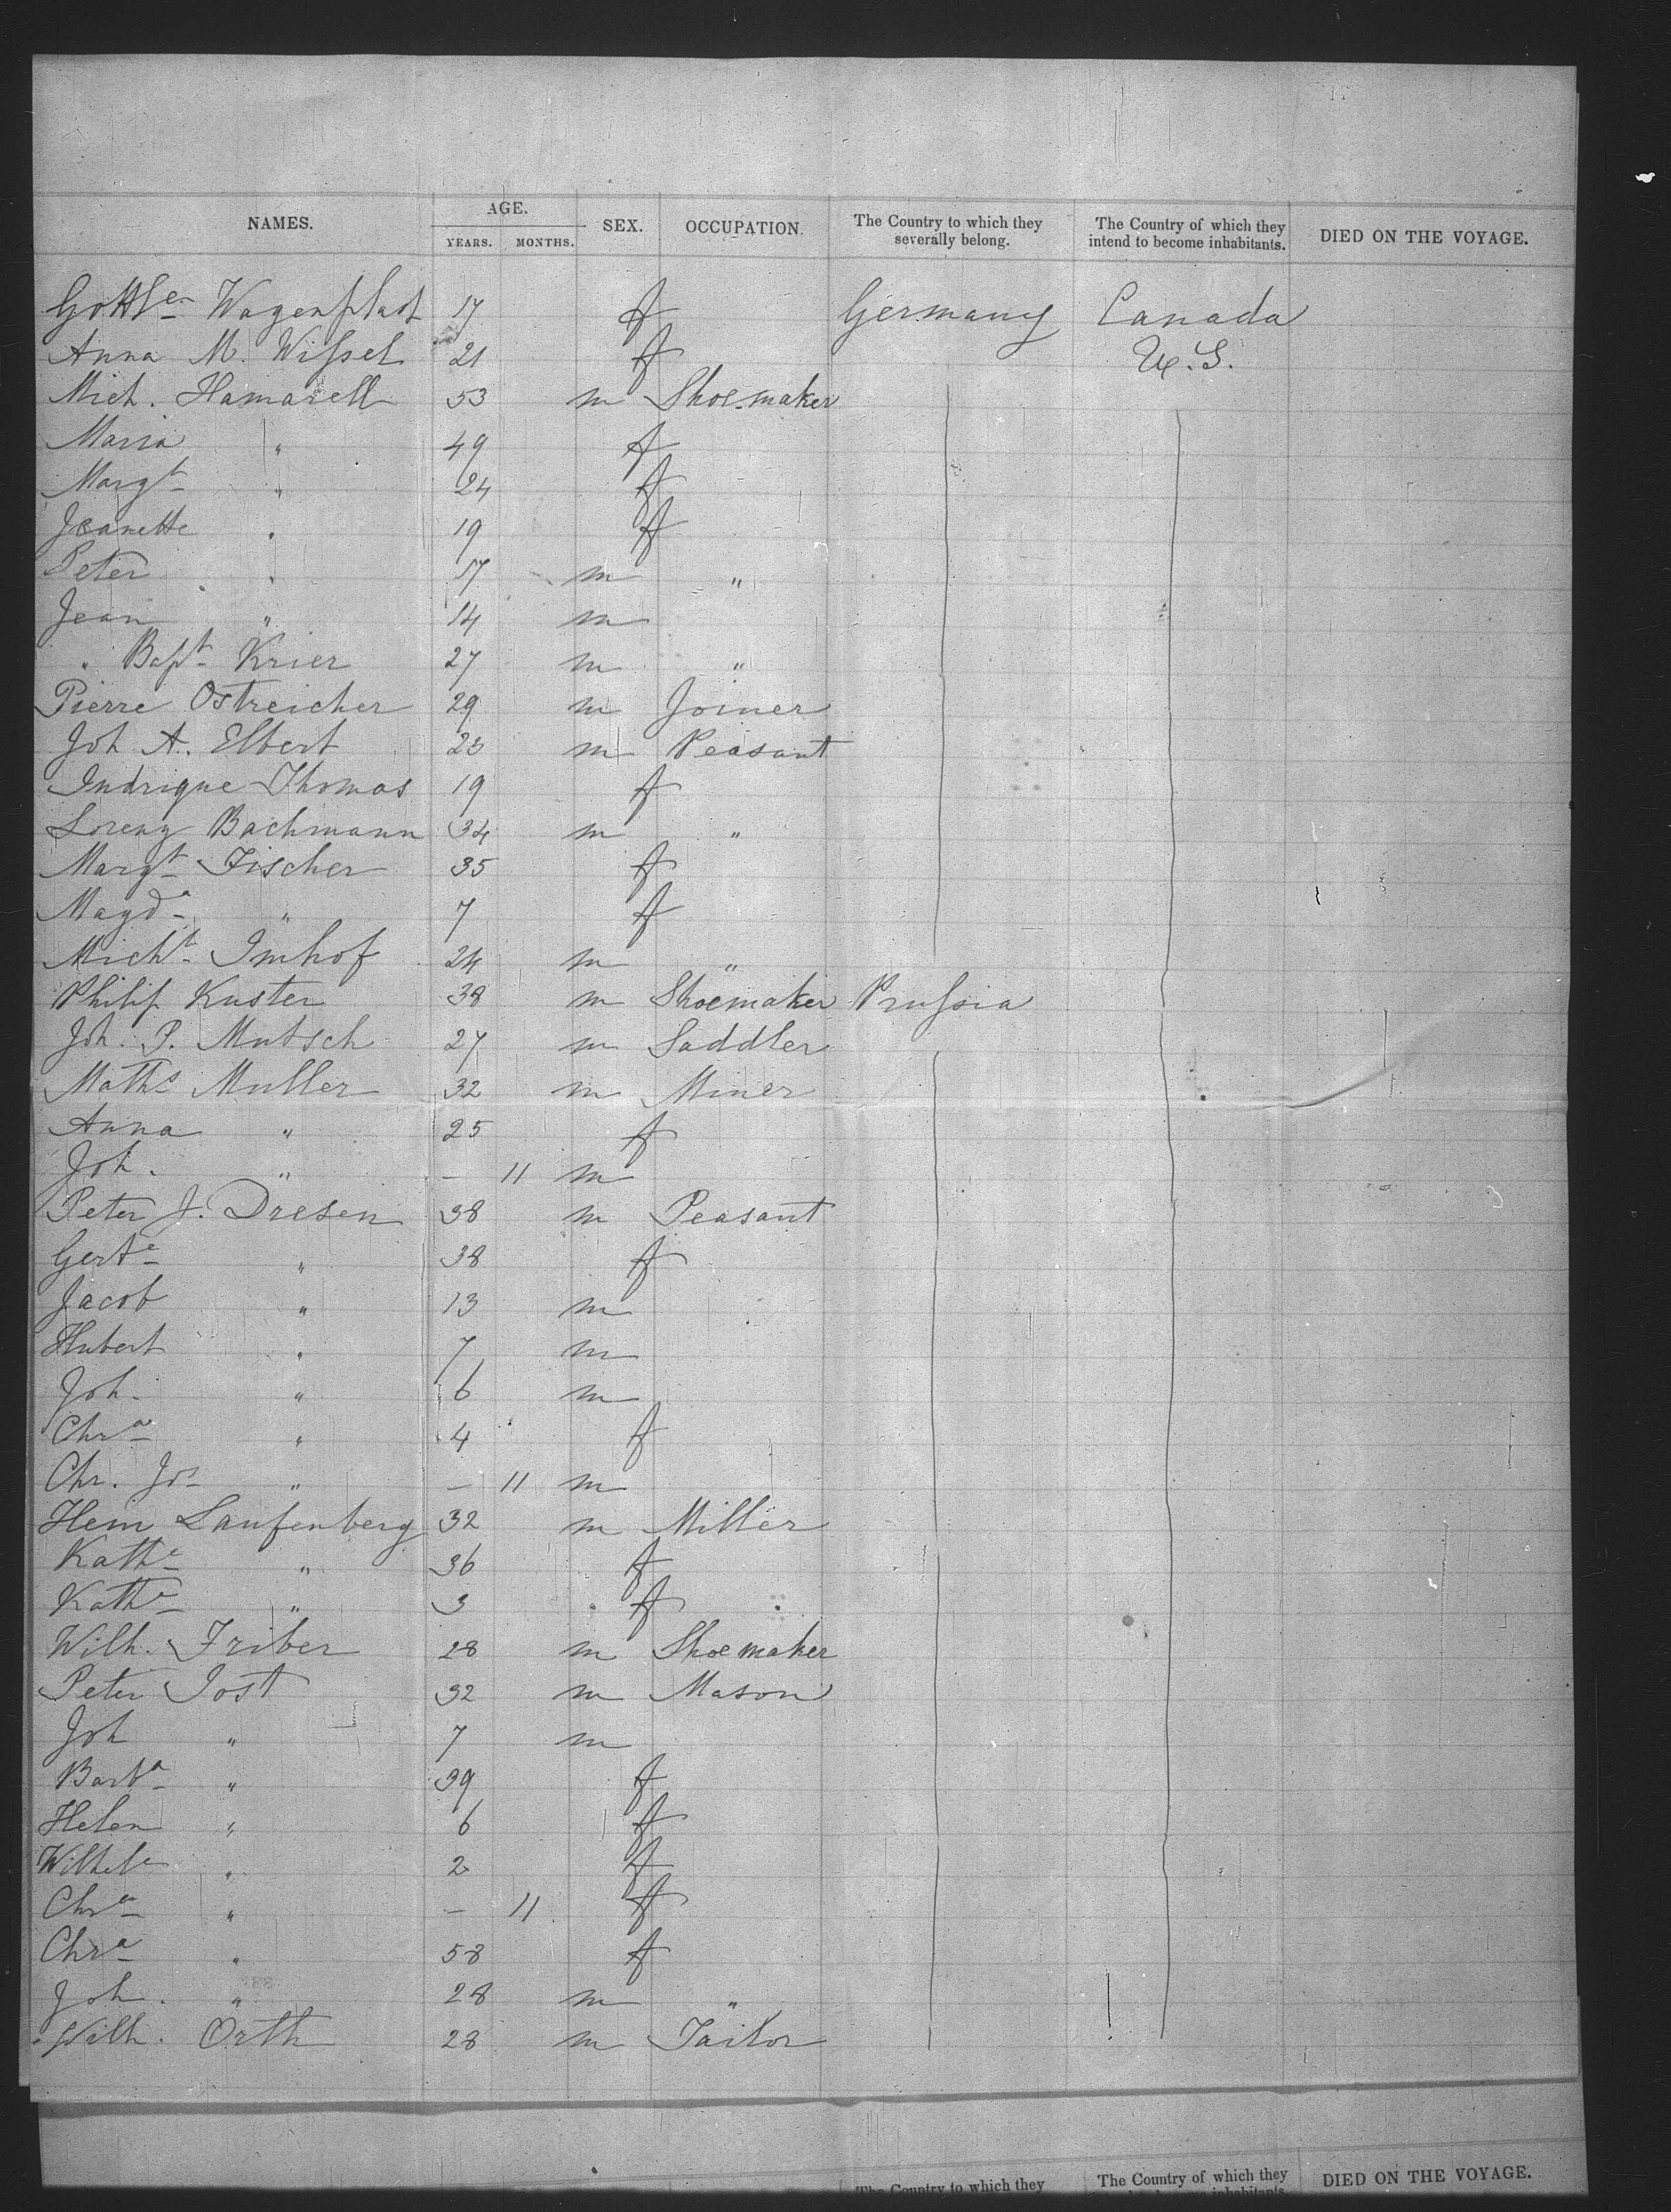 NAMES. AGE. YEARS. MONTHS. SEX. OCCUPATION. The Country to which they severally belong. The Country of which they intend to become inhabitants. DIED ON THE VOYAGE.
Gottle Wagenplast 17 f Germany Canada
Anna M. Wissel 21 f U.S.
Mich. Hamarell 53 m Shoemaker
Maria " 49 f
Margt " 24 f
Jeanette " 19 f
Peter " 17 m "
Jean " 14 m
" Bapt Krier 27 m "
Pierre Ostreicher 29 m Joiner
Joh A. Elbert 23 m Peasant
Indrique Thomas 19 f
Lorenz Bachmann 34 m "
Margt Fischer 35 f
Magda " 7 f
Michl Imhof 24 m "
Philip Kuster 38 m Shoemaker Prussia
Joh. P. Mutsch 27 m Saddler
Maths Muller 32 m Miner
Anna " 25 f
Joh. " - 11 m
Peter J. Dresen 38 m Peasant
Gerte " 38 f
Jacob " 13 m
Hubert " 7 m
Joh. " 6 m
Chra " 4 f
Chr. Jos " - 11 m
Hein Laufenberg 32 m Miller
Kathe " 36 f
Kathe " 3 f
Wilh. Friber 28 m Shoemaker
Peter Jost 32 m Mason
Joh " 7 m
Barba " 39 f
Helen " 6 f
Wilhele " 2 f
Chra " - 11 f
Chra " 58 f
Joh. " 28 m "
Wilh. Orth 28 m Tailor
The Country to which they The Country of which they DIED ON THE VOYAGE.